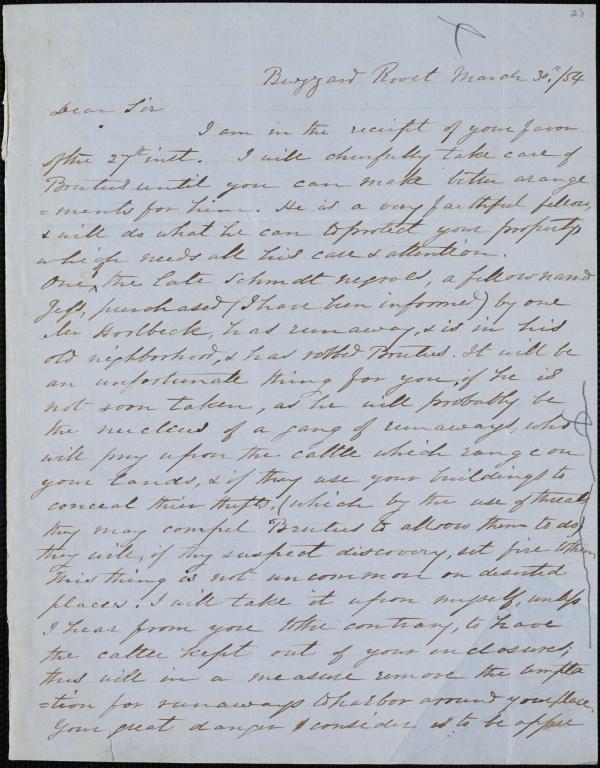 25
Buzzard Roost March 30th/54
Dear Sir
I am in the receipt of your favor
of the 27th inst. I will cheerfully take care of
Brutus until you can make better arange
=ments for him. He is a very faithful fellow,
& will do what he can to protect your property
which needs all his care & attention.
One, the late Schmidt negroes, a fellow named
Jeff, purchased (I have been informed) by one
Mr Horlbeck, has runaway, & is in his
old neighborhood, & has robbed Brutus. It will be
an unfortunate thing for you, if he is
not soon taken, as he will probably be
the nucleus of a gang of runaways, who
will prey upon the cattle which range on
your lands, & if they use your buildings to
conceal their thefts, (which by the use of threats
they may compel Brutus to allow them to do)
they will, if they suspect discovery, set fire to them.
This thing is not uncommon on deserted
places. I will take it upon myself, unless
I hear from you to the contrary, to have
the cattle kept out of your inclosures;
this will in a measure remove the tempta
=tion for runaways to harbor around your place.
Your great danger I consider is to be appre